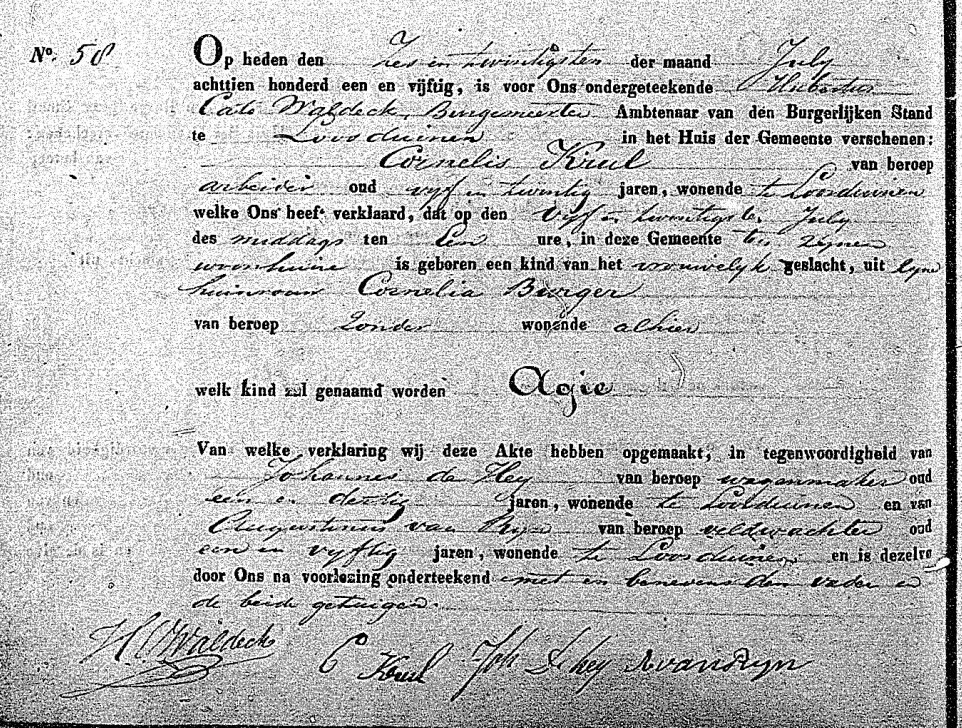 No. 58
Op heden den Zes en twintigsten der maand July
achttien honderd een en vijftig, is voor Ons ondergeteekende Hubertus
Cato Waldeck, Burgemeester Ambtenaar van den Burgerlijken Stand
te Loosduinen in het Huis der Gemeente verschenen:
Cornelis Krul van beroep
arbeider oud vyf en twintig jaren, wonende te Loosduinen
welke Ons heeft verklaard, dat op den Vyf en twintigste July
des middags ten Een ure, in deze Gemeente ten zynen
woonhuize is geboren een kind van het vrouwelyk geslacht, uit zyne
huisvrouw Cornelia Burger
van beroep Zonder wonende alhier
welk kind zal genaamd worden Agie
Van welke verklaring wij deze Akte hebben opgemaakt, in tegenwoordigheid van
Johannes de Hey van beroep wagenmaker oud
een en dertig jaren, wonende te Loosduinen en van
Augustinus van Ryn van beroep veldwachter oud
een en vyftig jaren, wonende te Loosduinen en is dezelve
door Ons na voorlezing onderteekend met en benevens den vader en
de beide getuigen.
H C Waldeck C Krul Joh D hey A van Ryn